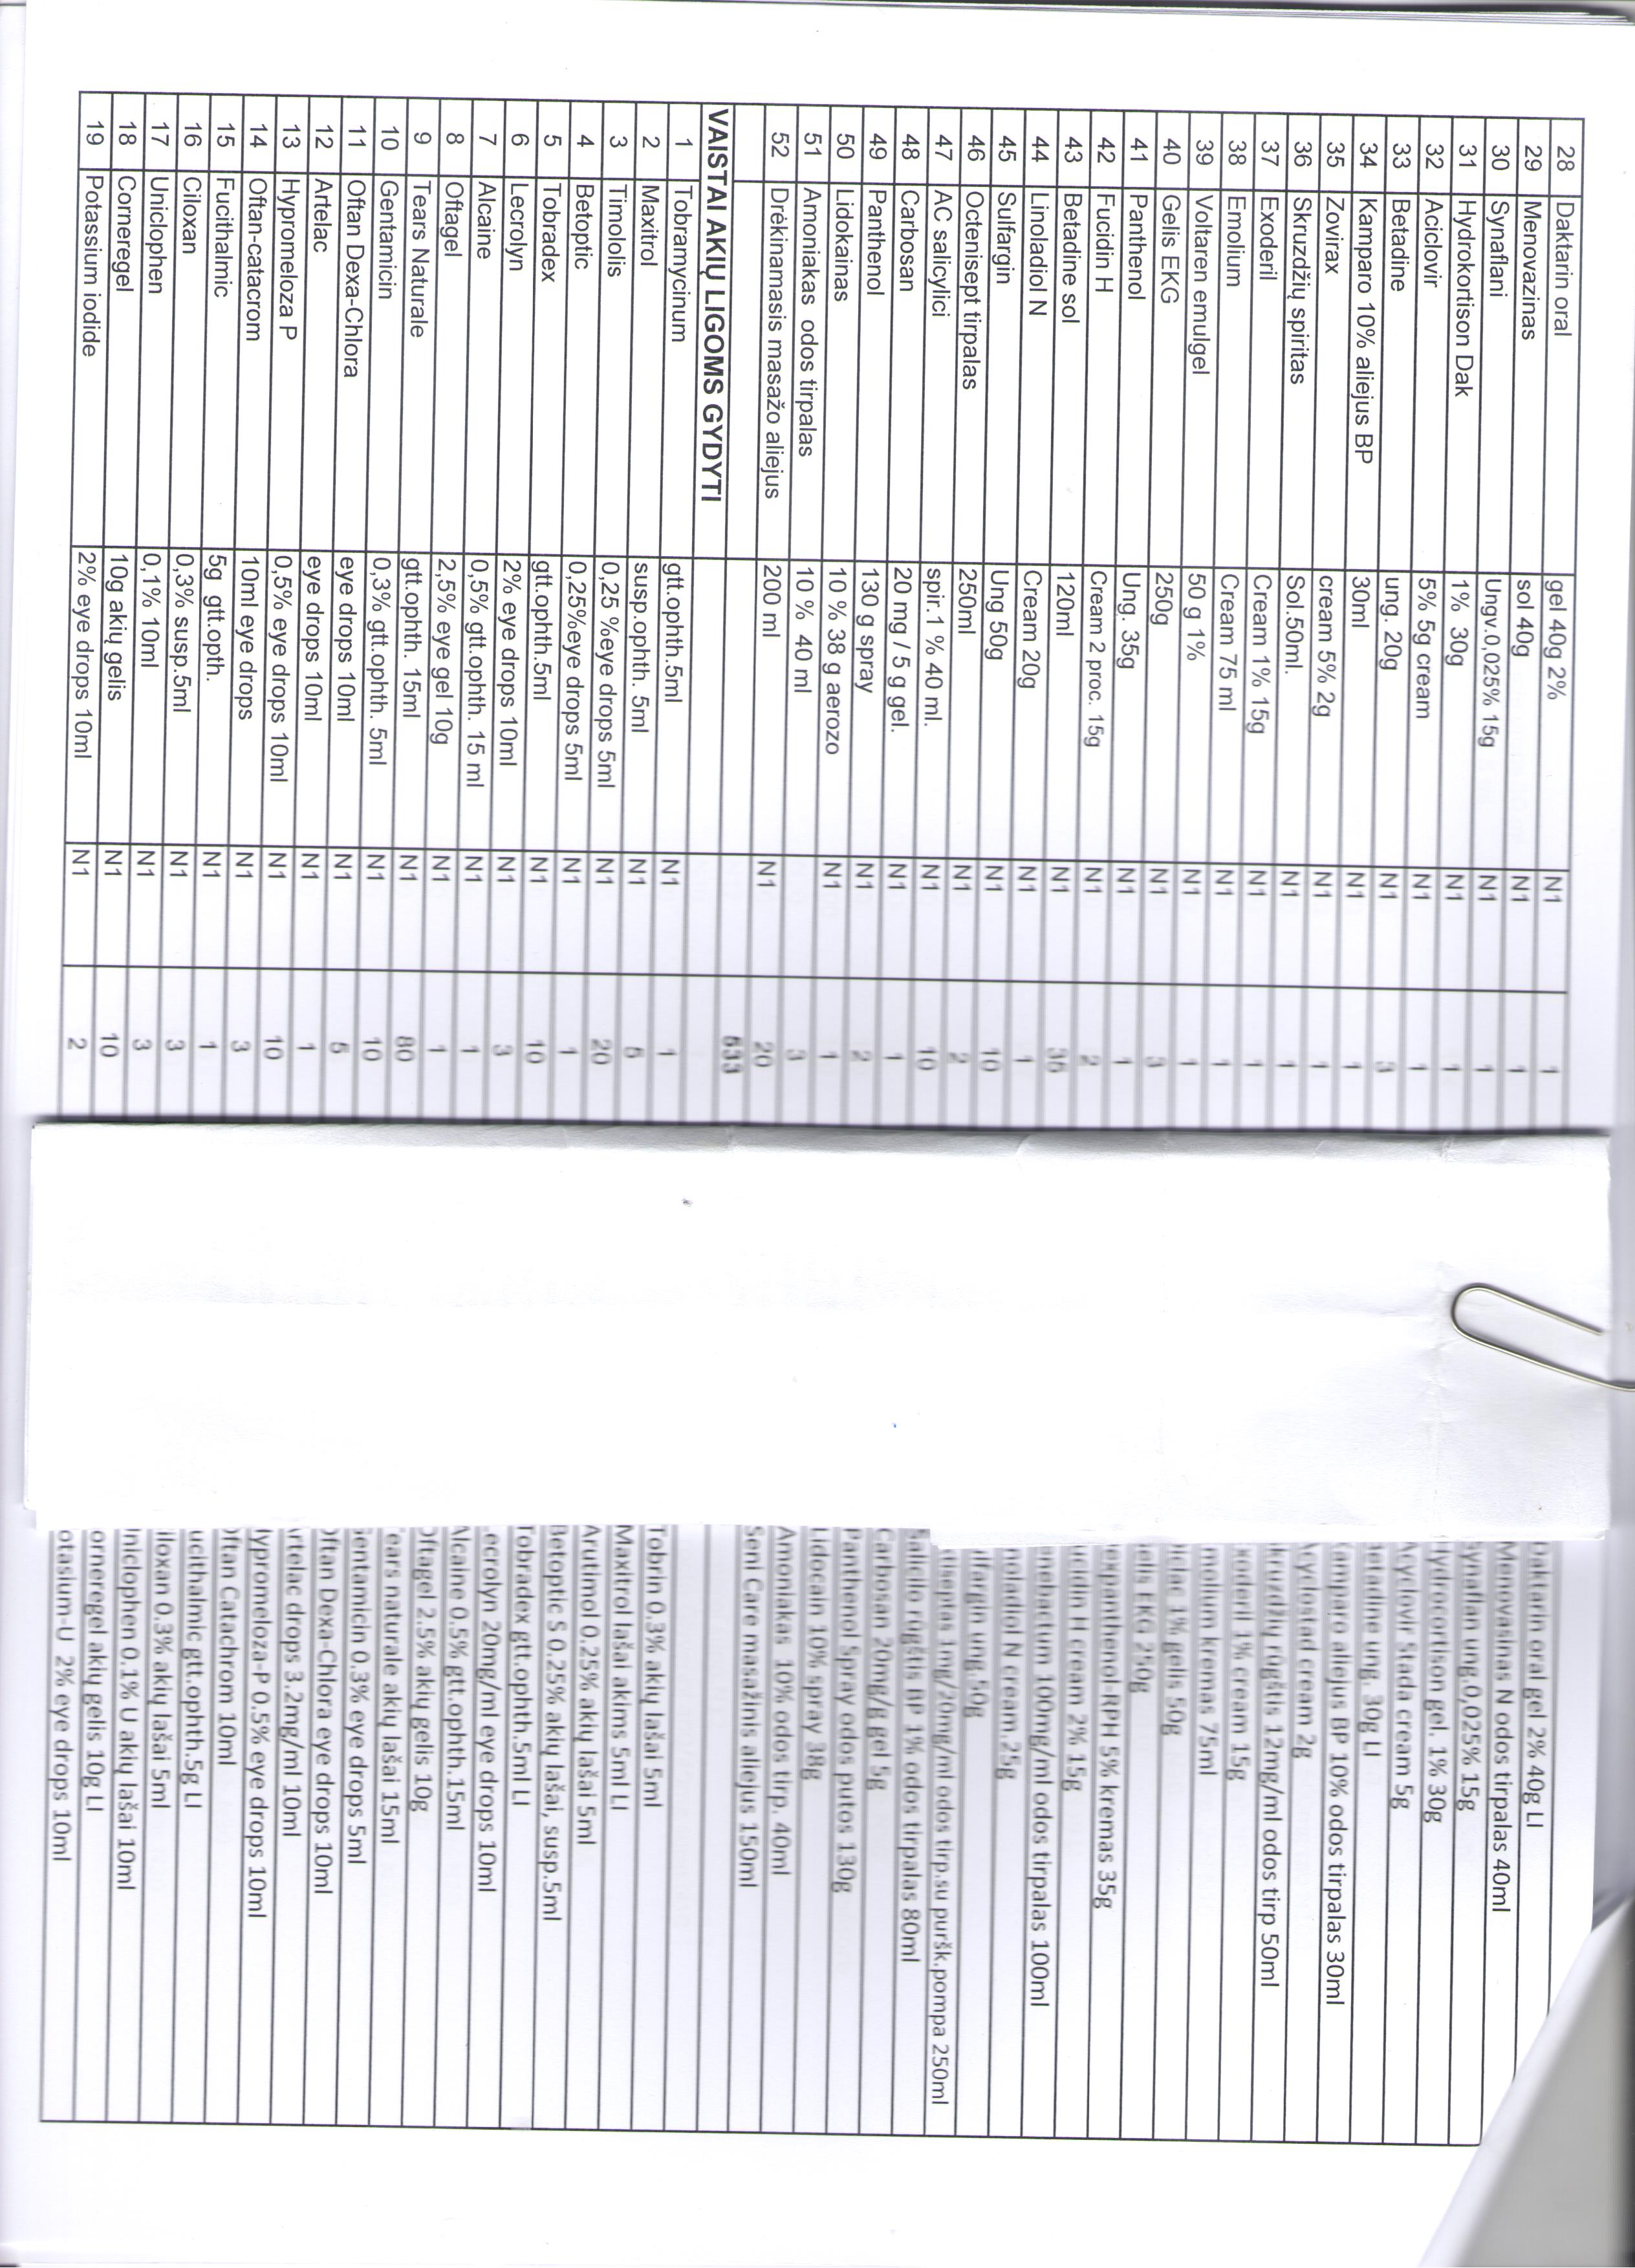 28 Daktarin oral gel 40g 2% N1 1 Daktarin oral gel 2% 40g LI
29 Menovazinas sol 40g N1 1 Menovasinas N odos tirpalas 40ml
30 Synaflani Ungv.0,025% 15g N1 1 Synaflan ung.0,025% 15g
31 Hydrokortison Dak 1% 30g N1 1 Hydrocortison gel. 1% 30g
32 Aciclovir 5% 5g cream N1 1 Acyclovir Stada cream 5g
33 Betadine ung. 20g N1 3 Betadine ung. 30g LI
34 Kamparo 10% aliejus BP 30ml N1 1 Kamparo aliejus BP 10% odos tirpalas 30ml
35 Zovirax cream 5% 2g N1 1 Acyclostad cream 2g
36 Skruzdžių spiritas Sol.50ml. N1 1 kruzdžių rūgštis 12mg/ml odos tirp 50ml
37 Exoderil Cream 1% 15g N1 1 xoderil 1% cream 15g
38 Emolium Cream 75 ml N1 1 molium kremas 75ml
39 Voltaren emulgel 50 g 1% N1 1 1% gelis 50g
40 Gelis EKG 250g N1 3 elis EKG 250g
41 Panthenol Ung. 35g N1 1 expanthenol-RPH 5% kremas 35g
42 Fucidin H Cream 2 proc. 15g N1 2 ucidin H cream 2% 15g
43 Betadine sol 120ml N1 36 nebactum 100mg/ml odos tirpalas 100ml
44 Linoladiol N Cream 20g N1 1 noladiol N cream.25g
45 Sulfargin Ung 50g N1 10 lfargin ung.50g
46 Octenisept tirpalas 250ml N1 2 tiseptas 1mg/20mg/ml odos tirp.su puršk.pompa 250ml
47 AC salicylici spir.1 % 40 ml. N1 10 Salicilo rūgštis BP 1% odos tirpalas 80ml
48 Carbosan 20 mg / 5 g gel. N1 1 Carbosan 20mg/g gel 5g
49 Panthenol 130 g spray N1 2 Panthenol Spray odos putos 130g
50 Lidokainas 10 % 38 g aerozo N1 1 Lidocain 10% spray 38g
51 Amoniakas odos tirpalas 10 % 40 ml 3 Amoniakas 10% odos tirp. 40ml
52 Drėkinamasis masažo aliejus 200 ml N1 20 Seni Care masažinis aliejus 150ml
533
VAISTAI AKIŲ LIGOMS GYDYTI
1 Tobramycinum gtt.ophth.5ml N1 1 Tobrin 0.3% akių lašai 5ml
2 Maxitrol susp.ophth. 5ml N1 5 Maxitrol lašai akims 5ml LI
3 Timololis 0,25 %eye drops 5ml N1 20 Arutimol 0.25% akių lašai 5ml
4 Betoptic 0,25%eye drops 5ml N1 1 Betoptic S 0.25% akių lašai, susp.5ml
5 Tobradex gtt.ophth.5ml N1 10 Tobradex gtt.ophth.5ml LI
6 Lecrolyn 2% eye drops 10ml N1 3 ecrolyn 20mg/ml eye drops 10ml
7 Alcaine 0,5% gtt.ophth. 15 ml N1 1 Alcaine 0.5% gtt.ophth.15ml
8 Oftagel 2,5% eye gel 10g N1 1 Oftagel 2.5% akių gelis 10g
9 Tears Naturale gtt.ophth. 15ml N1 80 ears naturale akių lašai 15ml
10 Gentamicin 0,3% gtt.ophth. 5ml N1 10 entamicin 0.3% eye drops 5ml
11 Oftan Dexa-Chlora eye drops 10ml N1 5 Oftan Dexa-Chlora eye drops 10ml
12 Artelac eye drops 10ml N1 1 rtelac drops 3.2mg/ml 10ml
13 Hypromeloza P 0,5% eye drops 10ml N1 10 ypromeloza-P 0.5% eye drops 10ml
14 Oftan-catacrom 10ml eye drops N1 3 ftan Catachrom 10ml
15 Fucithalmic 5g gtt.opth. N1 1 ucithalmic gtt.ophth.5g LI
16 Ciloxan 0,3% susp.5ml N1 3 iloxan 0.3% akių lašai 5ml
17 Uniclophen 0,1% 10ml N1 3 niclophen 0.1% U akių lašai 10ml
18 Corneregel 10g akių gelis N1 10 orneregel akių gelis 10g LI
19 Potassium iodide 2% eye drops 10ml N1 2 otasium-U 2% eye drops 10ml